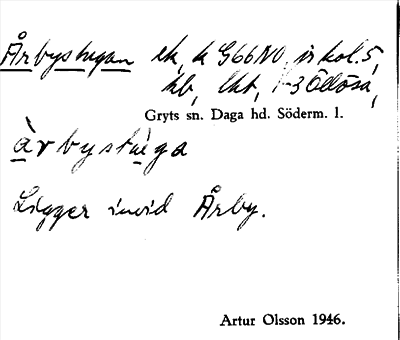 Årbystugan ek, k G66NO, is kol. 5,
hb, lht, 1-3 Ödlösa,
Gryts sn. Daga hd. Söderm. l.
àrbystùga
Ligger invid Årby.
Artur Olsson 1946.